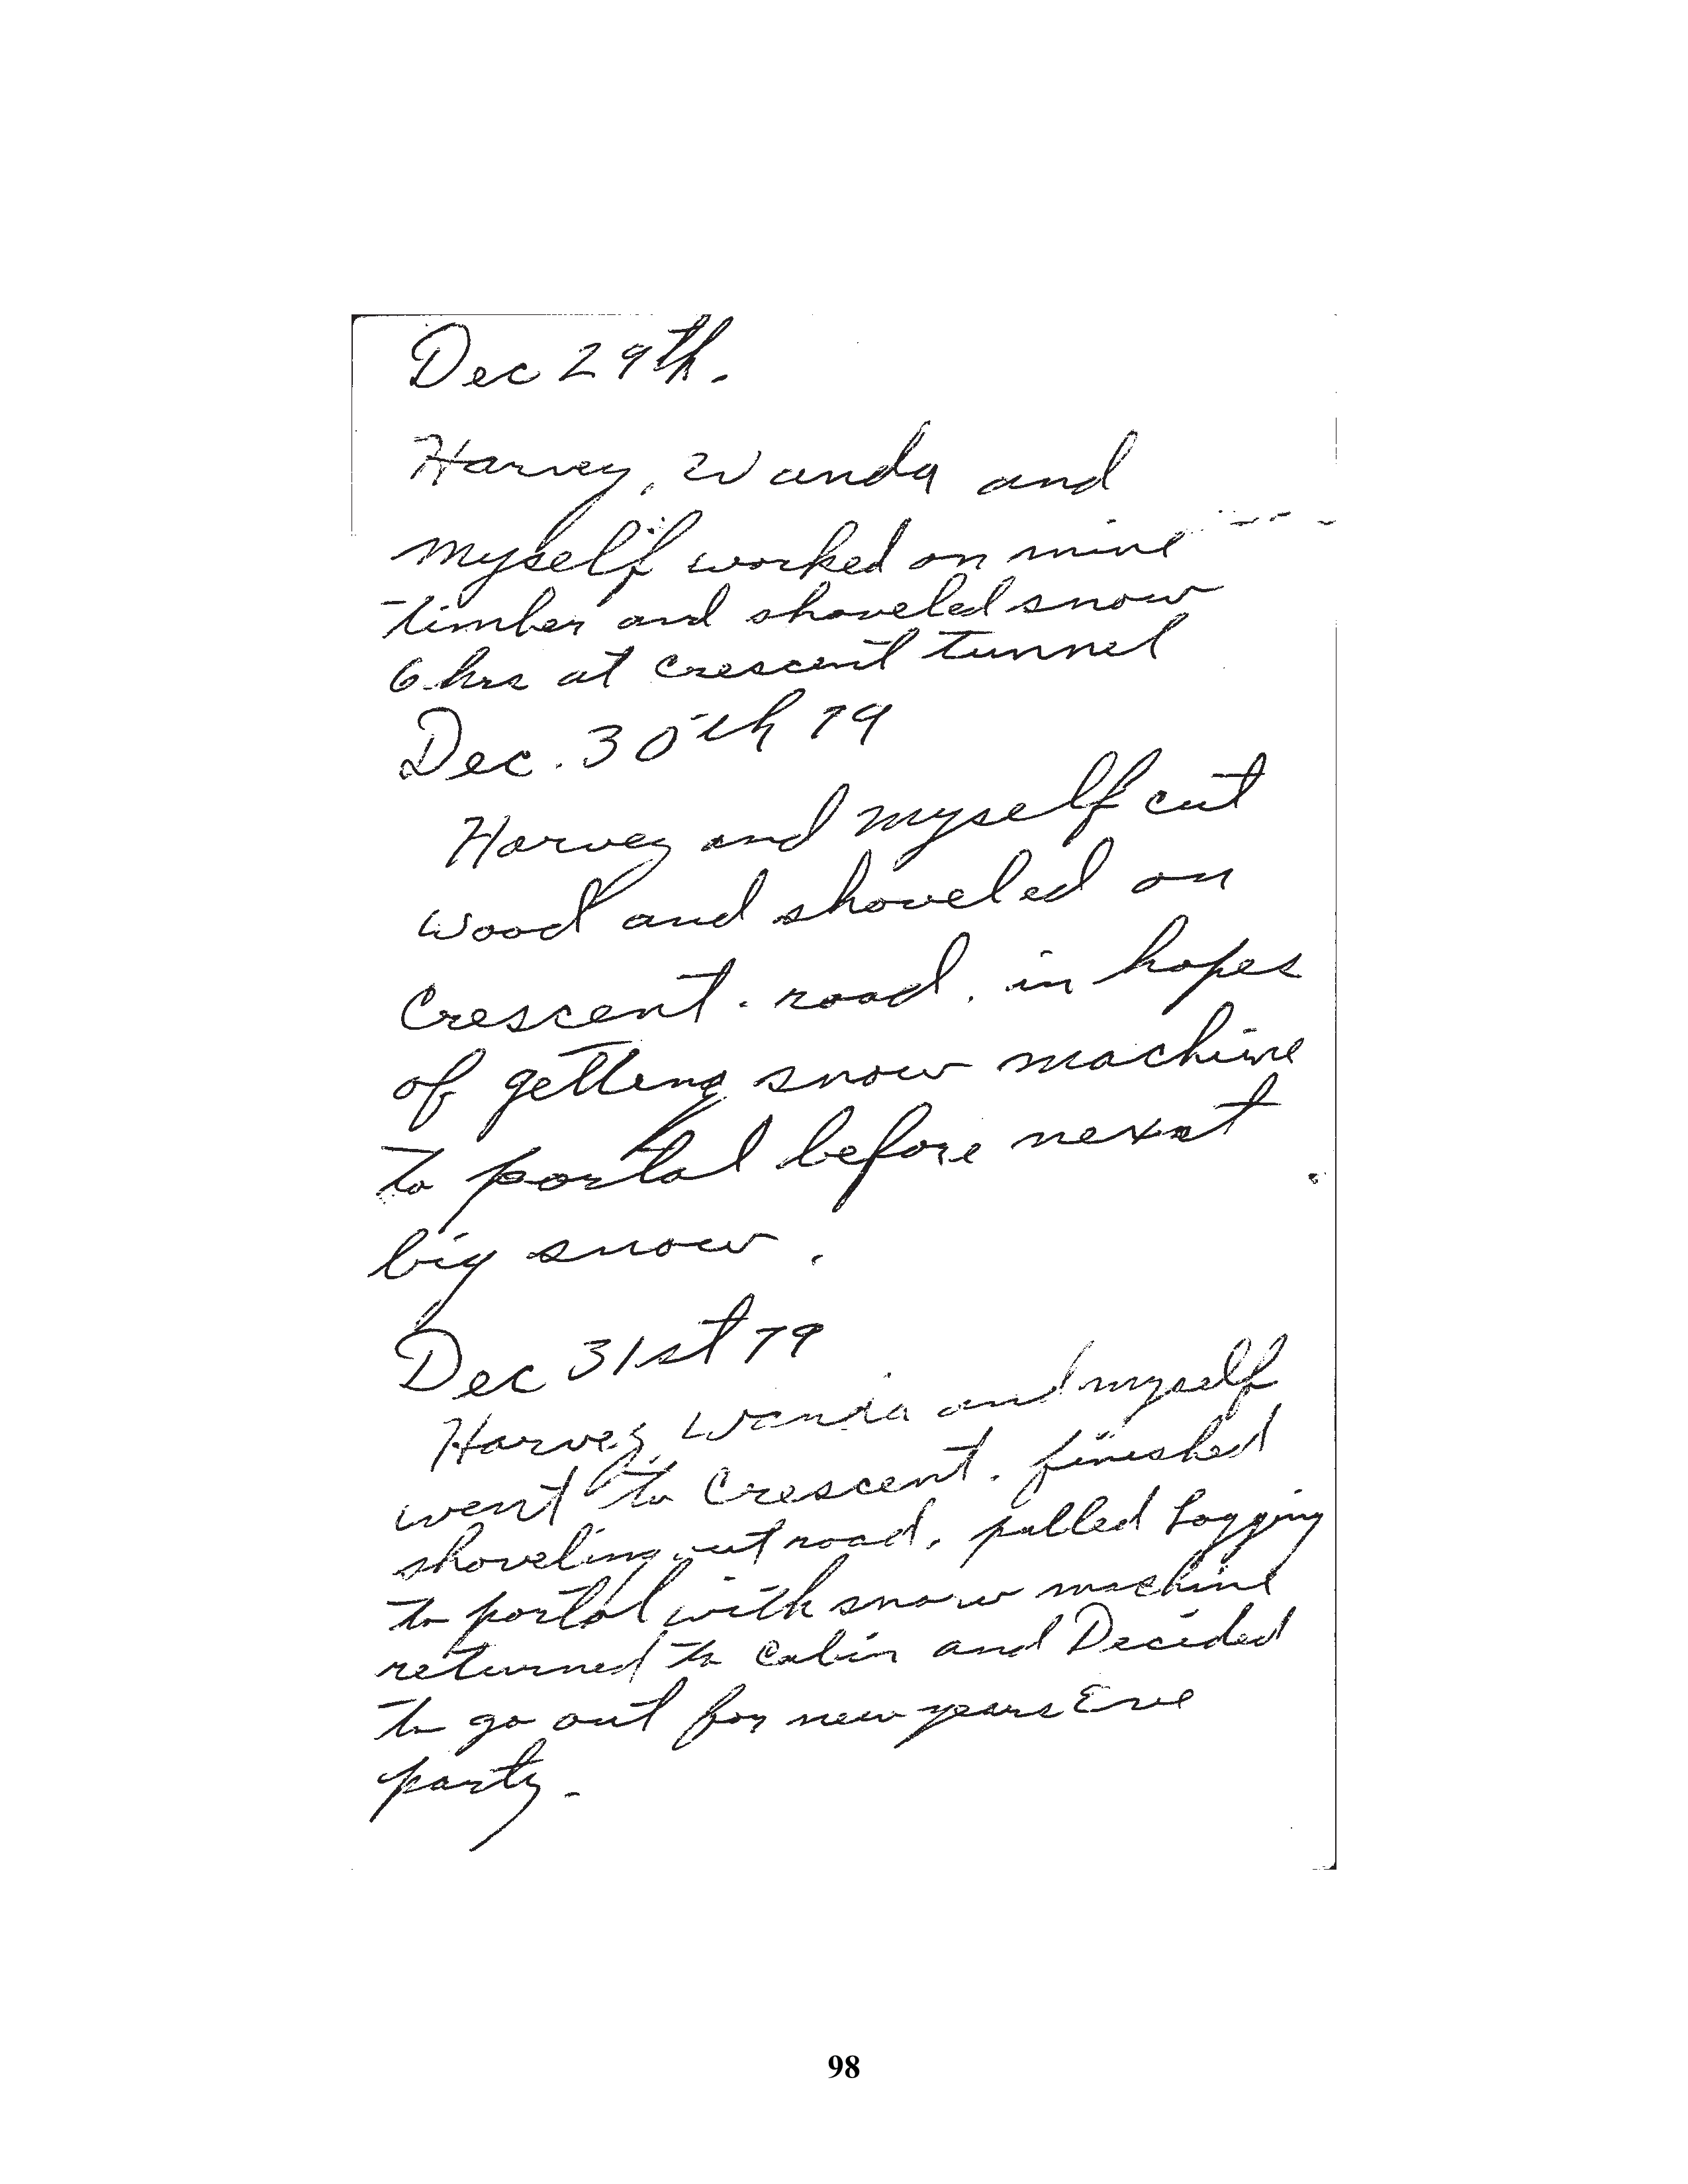 Dec 29th.
Harvey, Wanda and
myself worked on mine
timber and shoveled snow
6 hrs at crescent tunnel
Dec. 30th 79
Harvey and myself cut
wood and shoveled on
Crescent. road. in hopes
of getting snow machine
to portal before nexxt
big snow.
Dec 31st 79
Harvey, Wanda and myself
went to Crescent. finished
shoveling out road. pulled Lagging
to portal with snow machine
returned to Cabin and Decided
to go out for new years Eve
party.
98